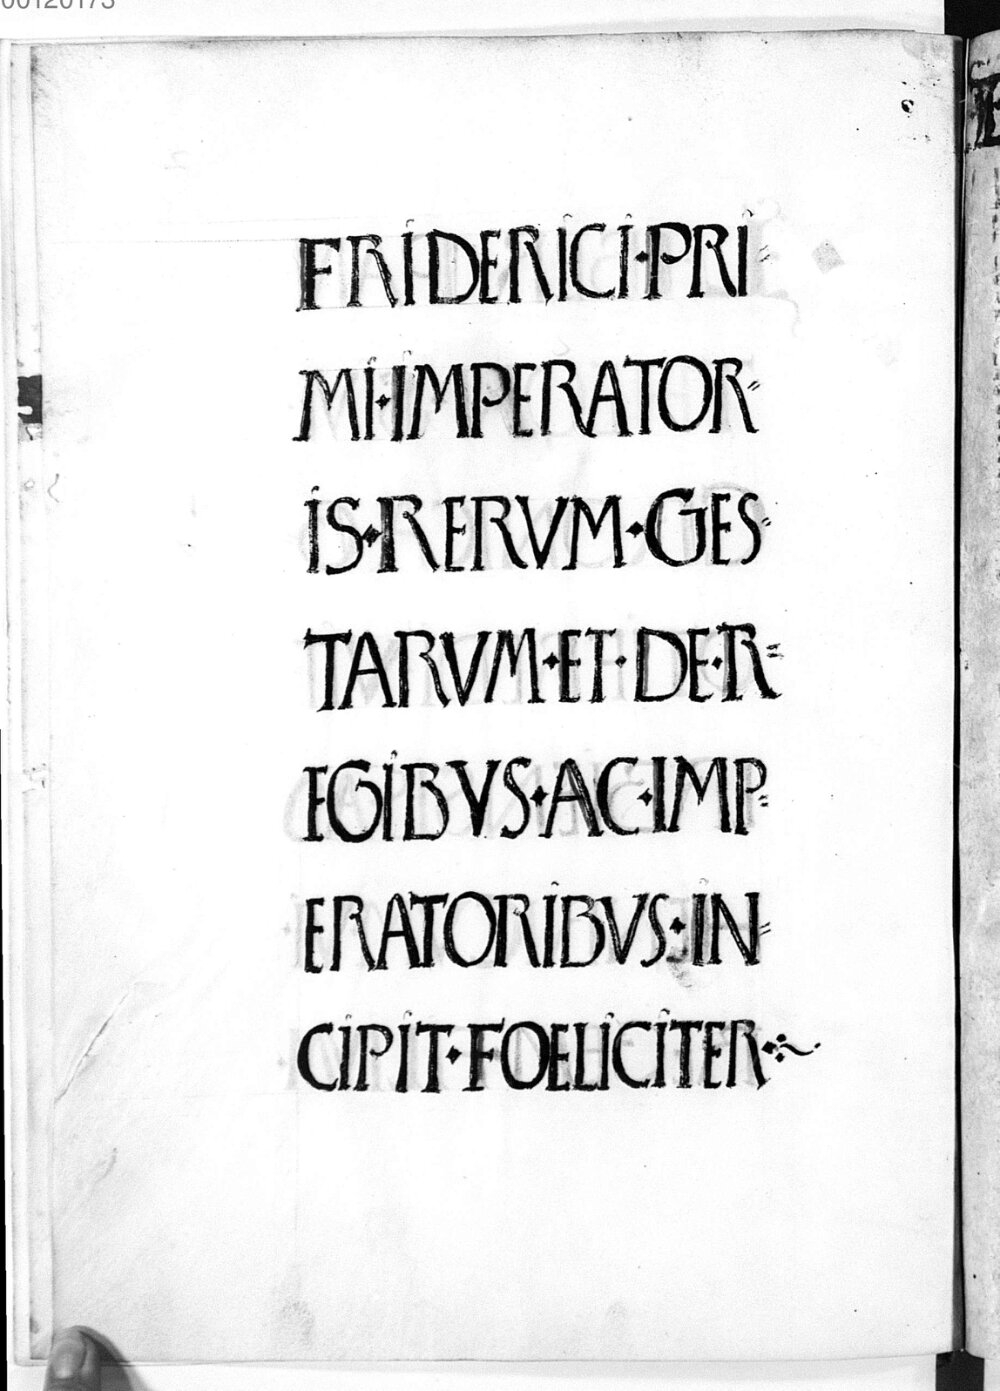 00120173
FRIDERICI·PRI=
MI·IMPERATOR=
IS·RERVM·GES=
TARVM·ET·DE·R=
EGIBVS·AC·IMP=
ERATORIBVS·IN=
CIPIT·FOELICITER